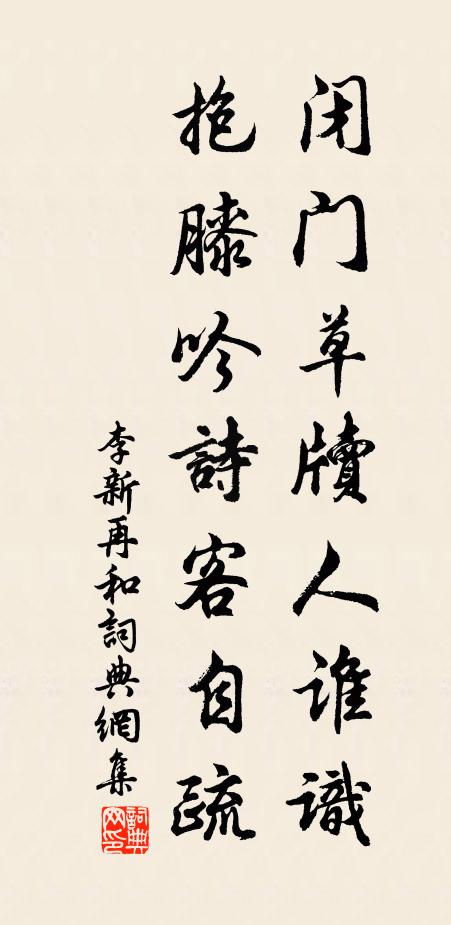 闭门草牘人谁識
抱膝吟詩客自疏
李新再和詞典網集
詞典网印